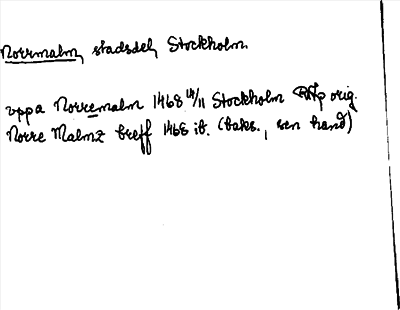 Norrmalm, stadsdel, Stockholm
uppa Norremalm 1468 14/11 Stockholm RAp orig.
Norre Malmz breff 1468 ib. (baks., sen hand)